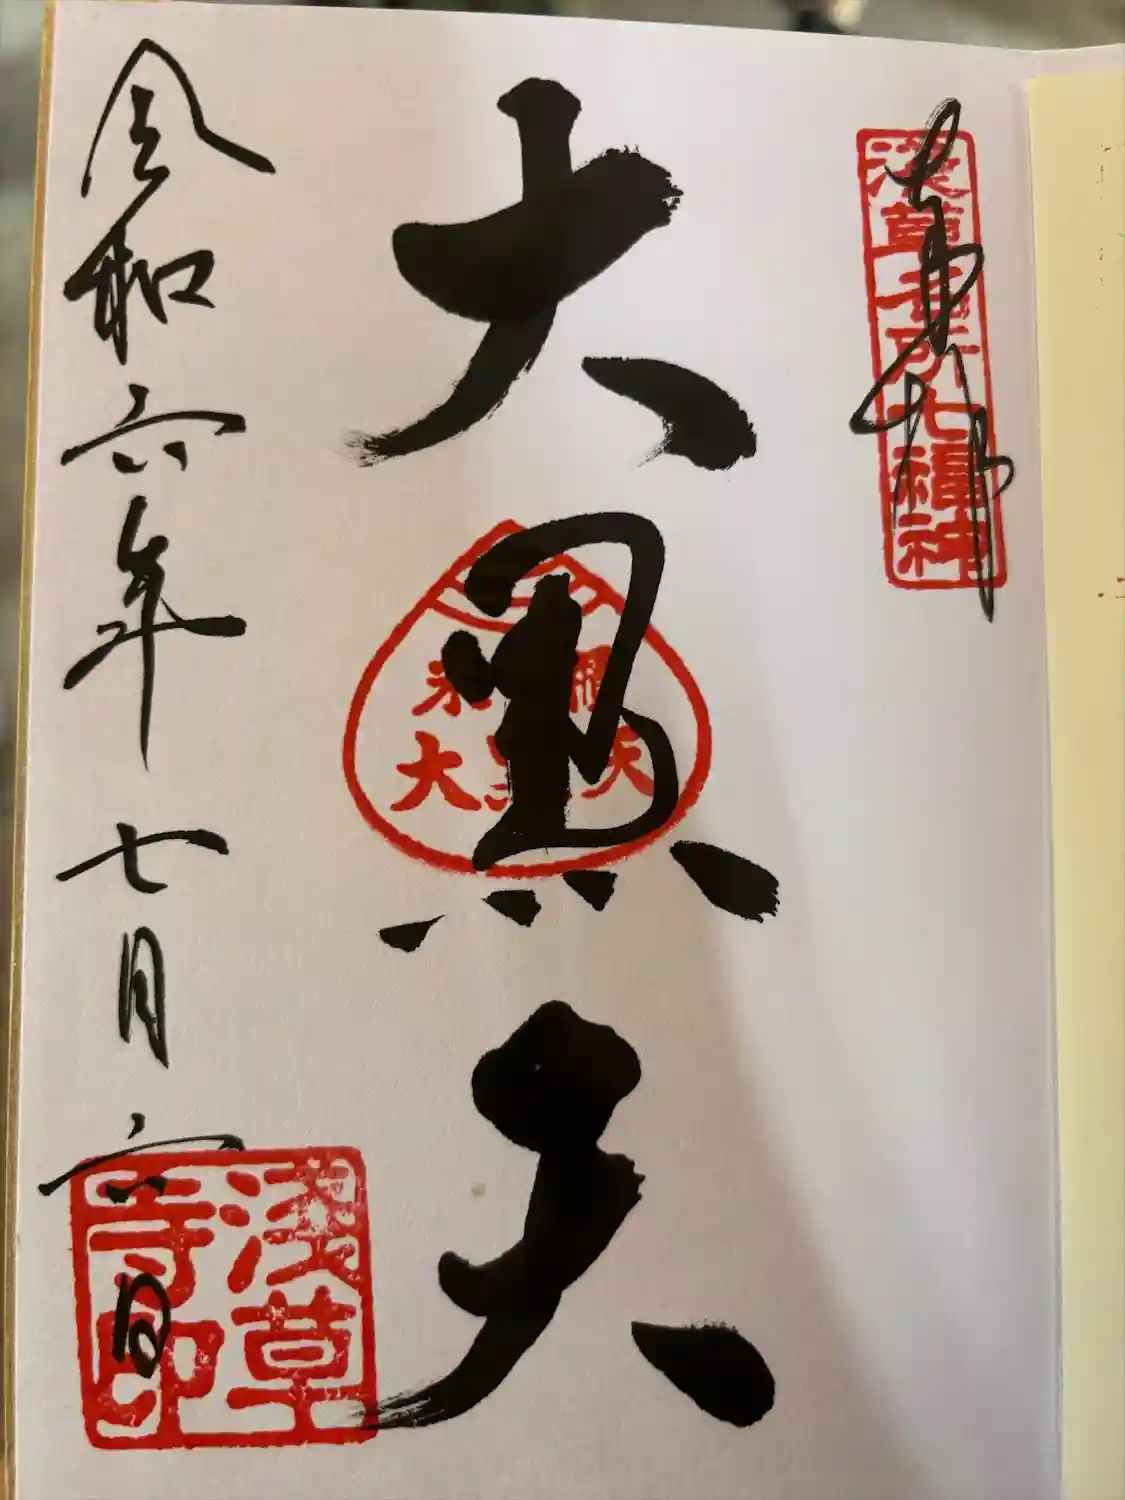 奉拝
浅草名所七福神
大黒天
大黒天
令和六年七月六日
浅草
寺印